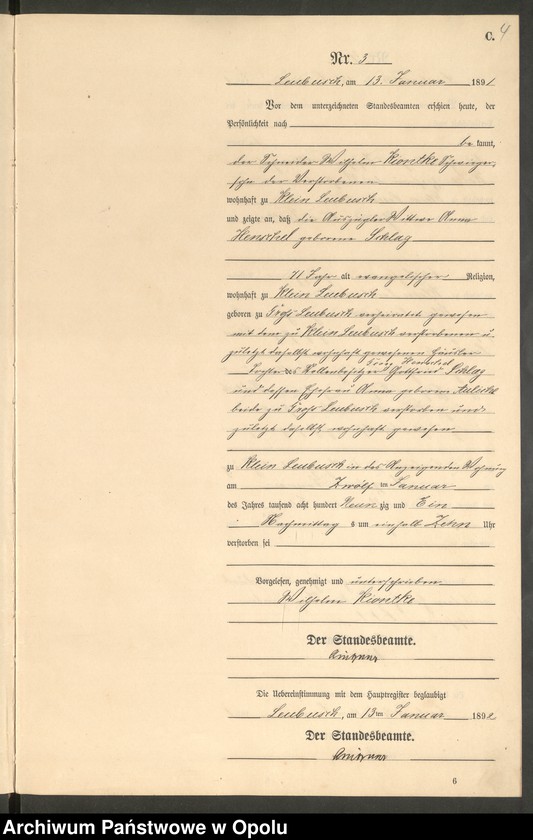 C. 4
Nr. 3
Leubusch, am 13. Januar 1891
Vor dem unterzeichneten Standesbeamten erschien heute, der
Persönlichkeit nach
bekannt,
der Schneider Wilhelm Kiontke Schwieger-
sohn der Verstorbenen
wohnhaft zu Klein Leubusch
und zeigte an, daß die Auszügler Wittwe Anna
Henschel geborene Schlag
71 Jahr alt evangelischer Religion,
wohnhaft zu Klein Leubusch
geboren zu Groß Leubusch verheirathet gewesen
mit dem zu Klein Leubusch verstorbenen u.
zuletzt daselbst wohnhaft gewesenen Häusler
Henschel
Tochter des Stellenbesitzer Gottfried Schlag
und dessen Ehefrau Anna geborene
beide zu Groß Leubusch verstorben und
zuletzt daselbst wohnhaft gewesen
zu Klein Leubusch in des Anzeigenden Wohnung
am Zwölften Januar
des Jahres tausend acht hundert Neunzig und Ein
Nachmittags um einhalb Zehn Uhr
verstorben sei
Vorgelesen, genehmigt und unterschrieben
Wilhelm Kiontke
Der Standesbeamte.
Die Uebereinstimmung mit dem Hauptregister beglaubigt
Leubusch, am 13ten Januar 189
Der Standesbeamte.
6
Archiwum Państwowe w Opolu